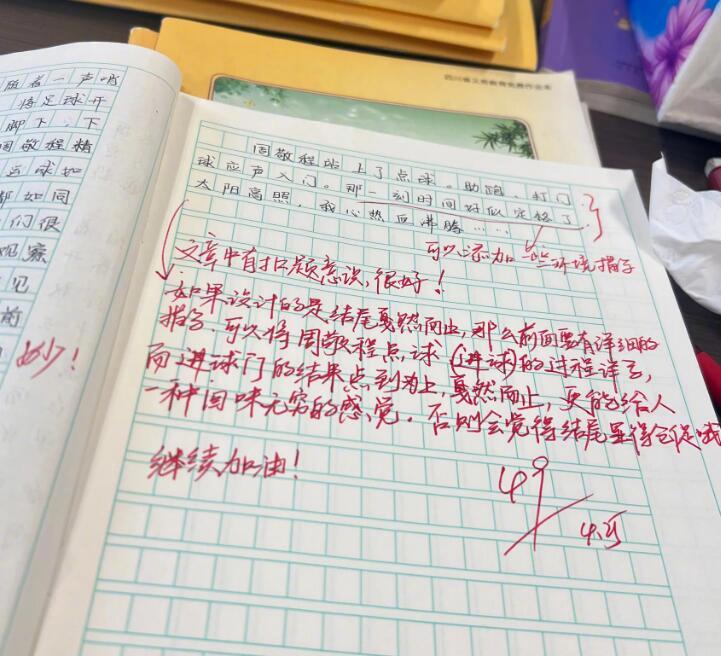 四川省义务教育免费作业本
随着一声哨
将足球开
脚下，下
周敬程精
运球如
都如同
们很
观察
见
前
妙！
周敬程站上了点球。助跑，打门
球应声入门。那一刻时间好似定格了
太阳高照，我心热血沸腾……
可以添加一些环境描写
文章中有扣题意识，很好！
如果设计的是结尾戛然而止，那么前面要有详细的
描写，可以将周敬程点球（进球）的过程详写，
而进球门的结果点到为止，戛然而止，更能给人
一种回味无穷的感觉。否则会觉得结尾显得仓促哦
继续加油！